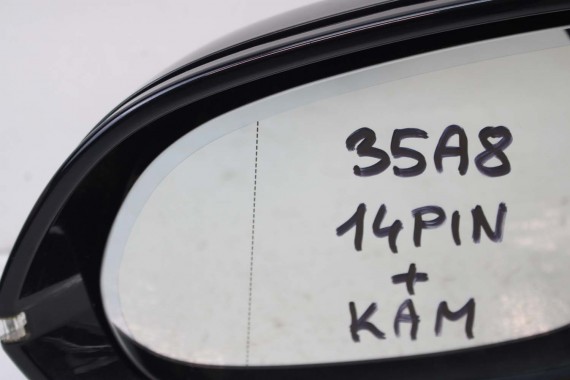 35A8
14PIN
+
KAM